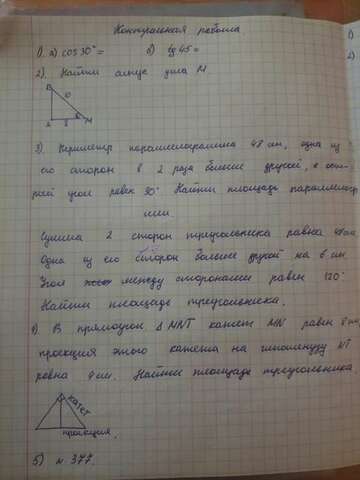 Контрольная работа
1). а) cos 30° = б) tg 45 =
2). Найти синус угла М
В
10
А 8 М
3) Периметр параллелограмма 48 см, одна из
его сторон в 2 раза больше другой, а ост-
рый угол равен 30° Найти площадь параллелогр
Сумма 2 сторон треугольника равна
Одна из его сторон больше другой на 6 см.
Угол между сторонами равен 120°
Найти площадь треугольника.
В прямоугол Δ MNT катет MN равен
проекция этого катета на гипотенузу NT
равна 4 см. Найти площадь треугольника.
катет
проекция.
5) № 377.